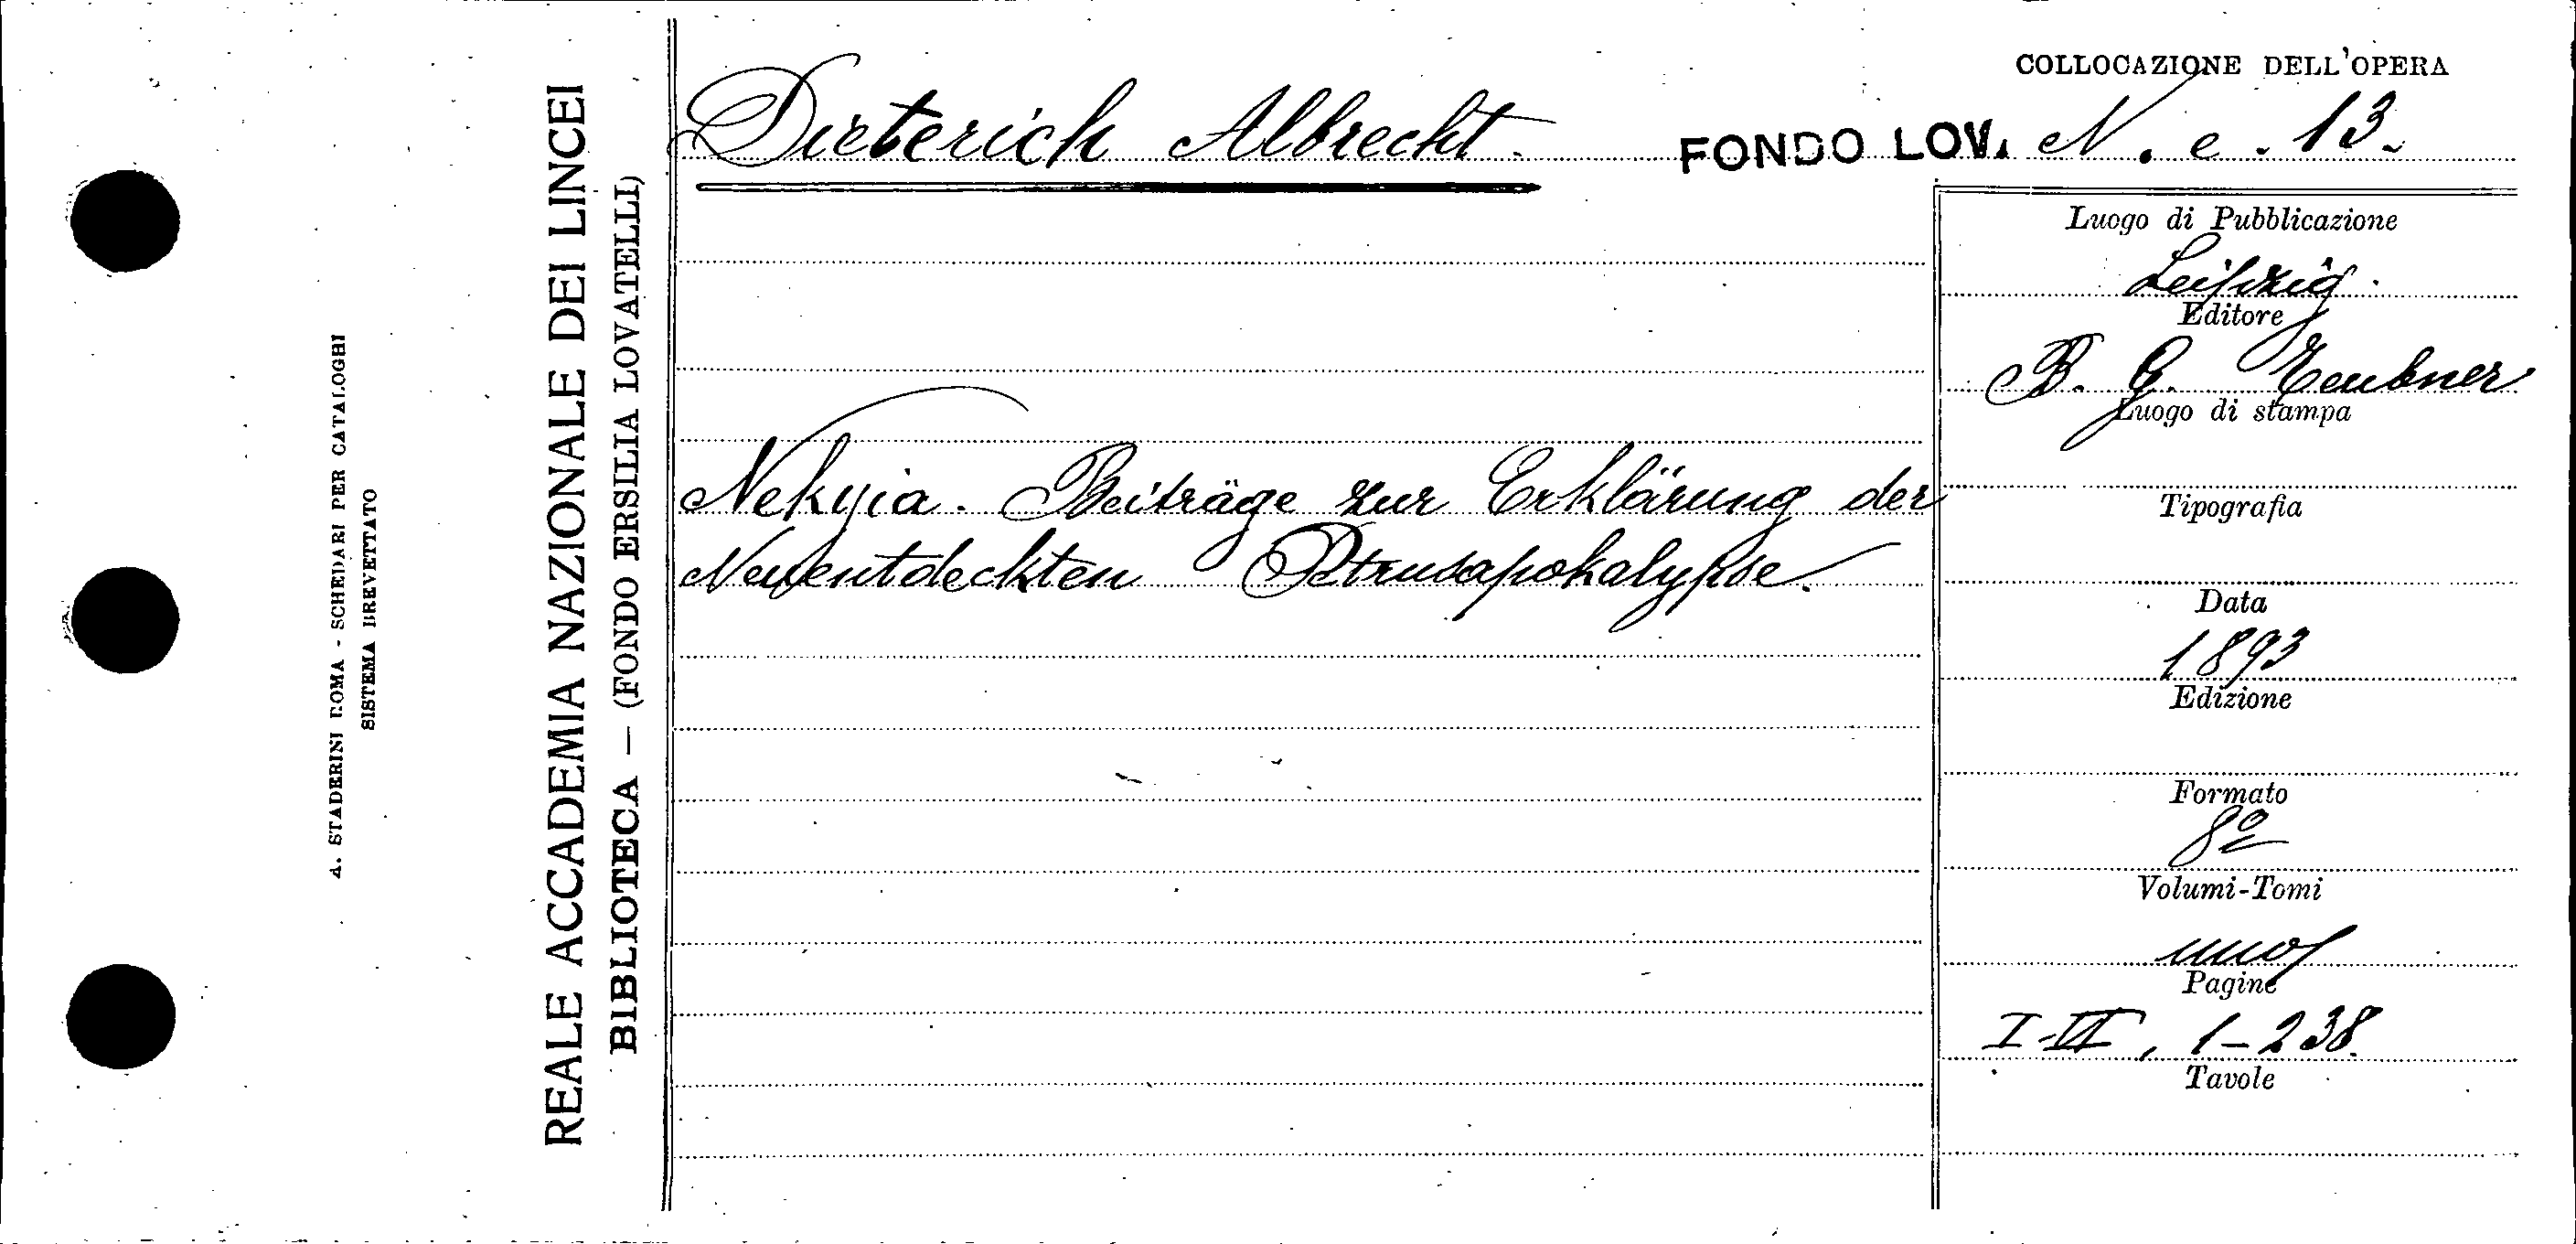 A. STADERINI ROMA - SCHEDARI PER CATALOGHI
SISTEMA BREVETTATO
REALE ACCADEMIA NAZIONALE DEI LINCEI
BIBLIOTECA — (FONDO ERSILIA LOVATELLI)
Dieterich Albrecht.
COLLOCAZIONE DELL'OPERA
FONDO LOV. N. e. 13.
Nekyia. Beiträge zur Erklärung der
Neuentdeckten Petrusapokalypse.
Luogo di Pubblicazione
Leipzig.
Editore
B. G. Teubner
Luogo di stampa
Tipografia
Data
1893
Edizione
Formato
8º
Volumi-Tomi
uno
Pagine
I-VI, 1-238.
Tavole